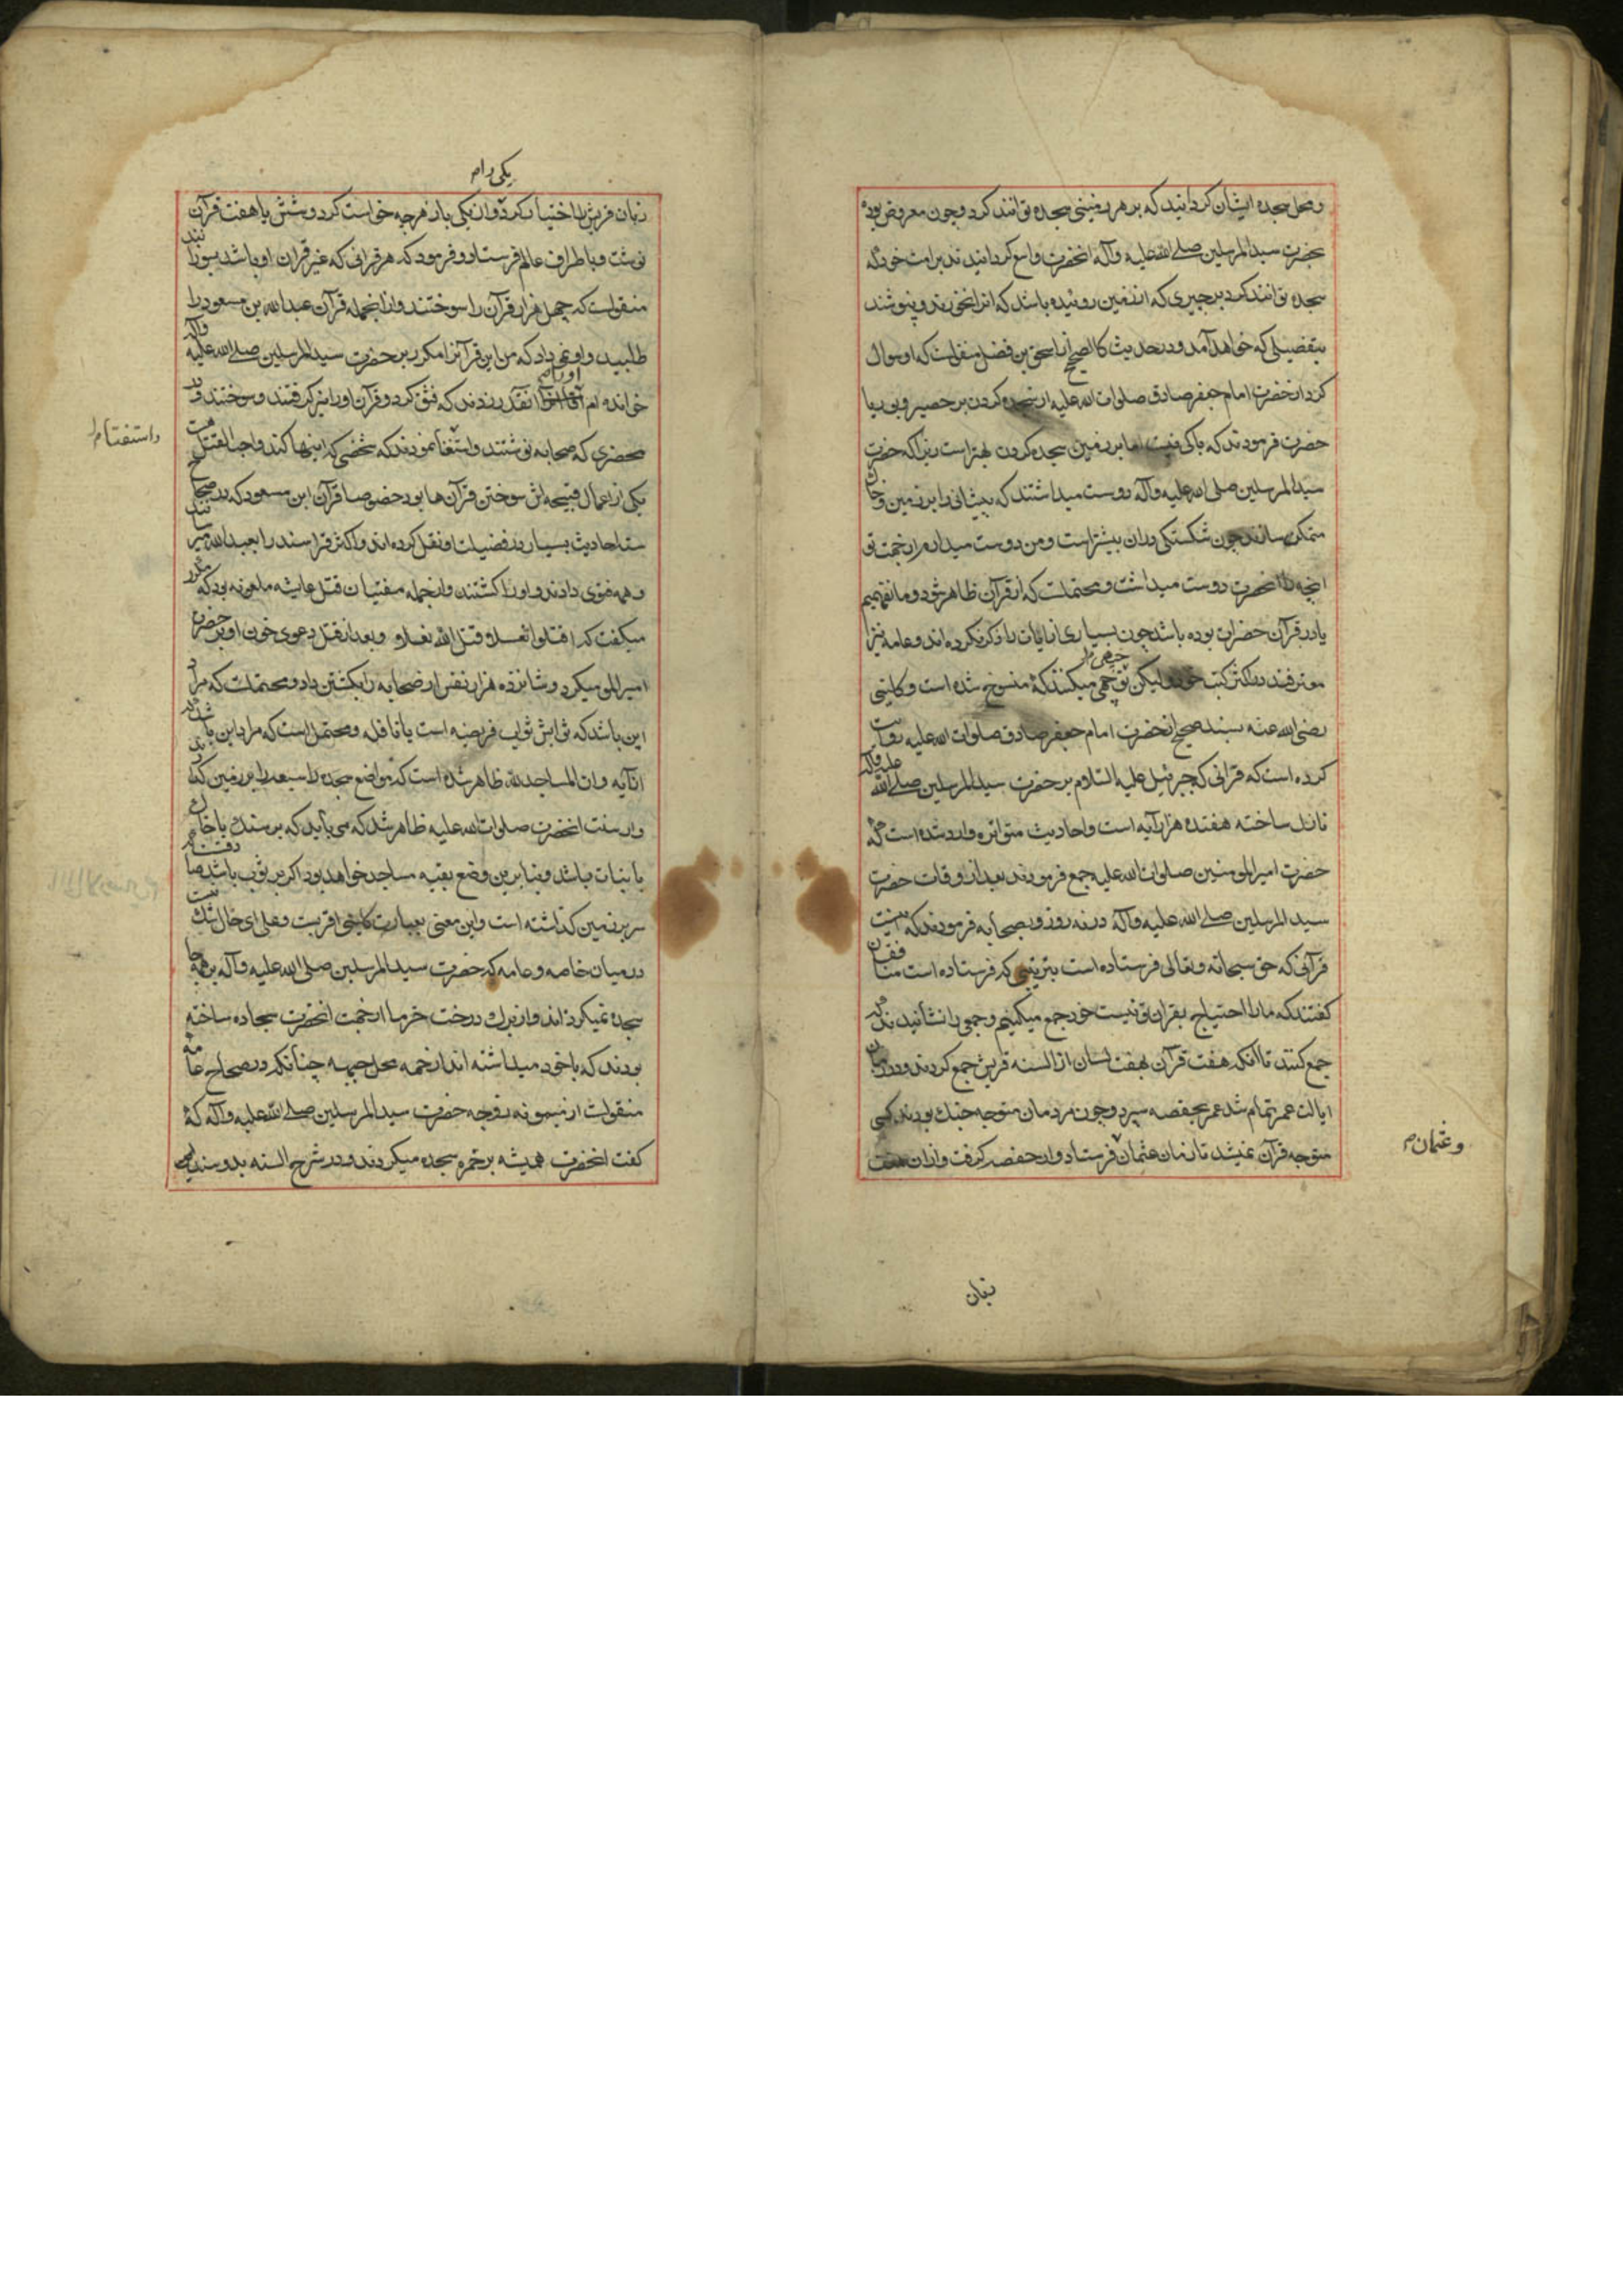 و محل سجده ایشان کردانید که بر هر زمینی سجده توانند کرد و چون معروض بوده
بحضرت سید المرسلین صلی الله علیه وآله انحضرت واسع کردانیدند بر امت خود که
سجده توانند کرد بر چیزی که از زمین روئیده باشد که انرا نخورند و نپوشند
بتفصیلی که خواهد آمد و در حدیث کالصحیح از اسحق بن فضل منقولست که او سوال
کرد از حضرت امام جعفر صادق صلوات الله علیه از سجده کردن بر حصیر و بوریا
حضرت فرمودند که باکی نیست اما بر زمین سجده کردن بهتر است زیرا که حضرت
سید المرسلین صلی الله علیه وآله دوست میداشتند که پیشانی را بر زمین و خاک
متمکن سازند چون شکستکی دران بیشتر است و من دوست میدارم از جهت تو
انچه را انحضرت دوست میداشت و محتملست که از قرآن ظاهر شود و ما نفهمیم
یا در قرآن حضرات بوده باشد چون بسیاری از ایات را ذکر نکرده اند و عامه نیز
معترفند در اکثر کتب خود لیکن توجیهی میکنند که منسوخ شده است و کلینی
رضی الله عنه بسند صحیح از حضرت امام جعفر صادق صلوات الله علیه روایت
کرده است که قرانی که جبرئیل علیه السلام بر حضرت سید المرسلین صلی الله علیه وآله
نازل ساخته هفده هزار آیه است و احادیث متواتره وارد شده است که
حضرت امیر المومنین صلوات الله علیه جمع فرمودند بعد از وفات حضرت
سید المرسلین صلی الله علیه وآله در نه روز و بصحابه فرمودند که اینست
قرآنی که حق سبحانه وتعالی فرستاده است بترتیبی که فرستاده است منافقان
کفتند که ما را احتیاج بقران تو نیست خود جمع میکنیم و جمعی را نشانیدند که
جمع کنند تا انکه هفت قرآن بهفت لسان از السنه قریش جمع کردند و در زمان
ایالت عمر تمام شد عمر بحفصه سپرد و چون مردمان متوجه جنک بودند کسی
متوجه قرآن نمیشد تا زمان عثمان فرستاد و از حفصه کرفت و ازان هفت
وعثمان م
زبان
یکی را م
زبان قریش را اختیار کرد و ازان یکی باز هرچه خواست کرد و شش یا هفت قرآن
نوشت و باطراف عالم فرستاد و فرمود که هر قرانی که غیر قران او باشد بسوزانند
منقولست که چهل هزار قرآن را سوختند و ازانجمله قرآن عبدالله بن مسعود را
طلبید و او نمی داد که من این قرآنرا مکرر بر حضرت سید المرسلین صلی الله علیه وآله
خوانده ام او را انقدر زدند که فتق کرد و قرآن او را نیز کرفتند و سوختند و در
محضری که صحابه نوشتند و استفتا نمودند که شخصی که اینها کند واجب القتل است
واستفتا م
یکی از اعمال قبیحه اش سوختن قرآن ها بود خصوصا قرآن ابن مسعود که در صحاح
سته احادیث بسیار در فضیلت او نقل کرده اند و اکثر قرا سند را بعبد الله میرسانند
و همه فتوی دادند و او را کشتند و ازجمله مفتیان قتل عایشه ملعونه بود که مکرر
میکفت که اقتلوا نعثلا قتل الله نعثلا و بعد از قتل دعوی خون او بر حضرت
امیر المومنین میکرد و شانزده هزار نفس از صحابه را بکشتن داد و محتملست که مراد
این باشد که ثوابش ثواب فریضه است یا نافله و محتمل است که مراد این باشد که
از آیه وان المساجد لله ظاهر شده است که مواضع سجده را سبعه را بر زمین کذارند
و از سنت انحضرت صلوات الله علیه ظاهر شد که می باید که بر سنک یا خاک
یا نبات باشد و بنا برین وضع بقیه مساجد خواهد بود اکر بر ثوب باشد
سر بر زمین کذاشته است و این معنی بعبارت کلینی اقربست و علی ای حال شک نیست
در میان خاصه و عامه که حضرت سید المرسلین صلی الله علیه وآله بر همه جا
سجده نمیکرده اند و از برک درخت خرما از جهت انحضرت سجاده ساخته
بودند که با خود میداشته اند از خمره محل جبهه چنانکه در صحاح عامه
منقولست از میمونه زوجه حضرت سید المرسلین صلی الله علیه وآله که
کفت انحضرت همیشه بر خمره سجده میکردند و در شرح السنه بدو سند